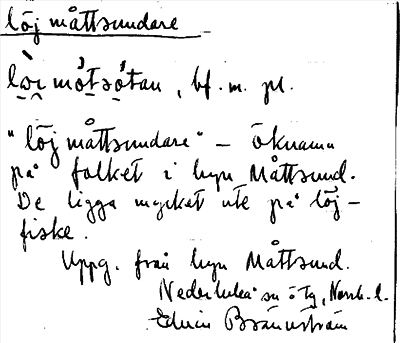 löj måttsundare
bf. m. pl.
"löj måttsundare" – öknamn
på folket i byn Måttsund.
De ligga mycket ute på löj-
fiske.
Uppg. från byn Måttsund.
Nederluleå sn ö Tg, Norrb. l.
Edvin Brännström